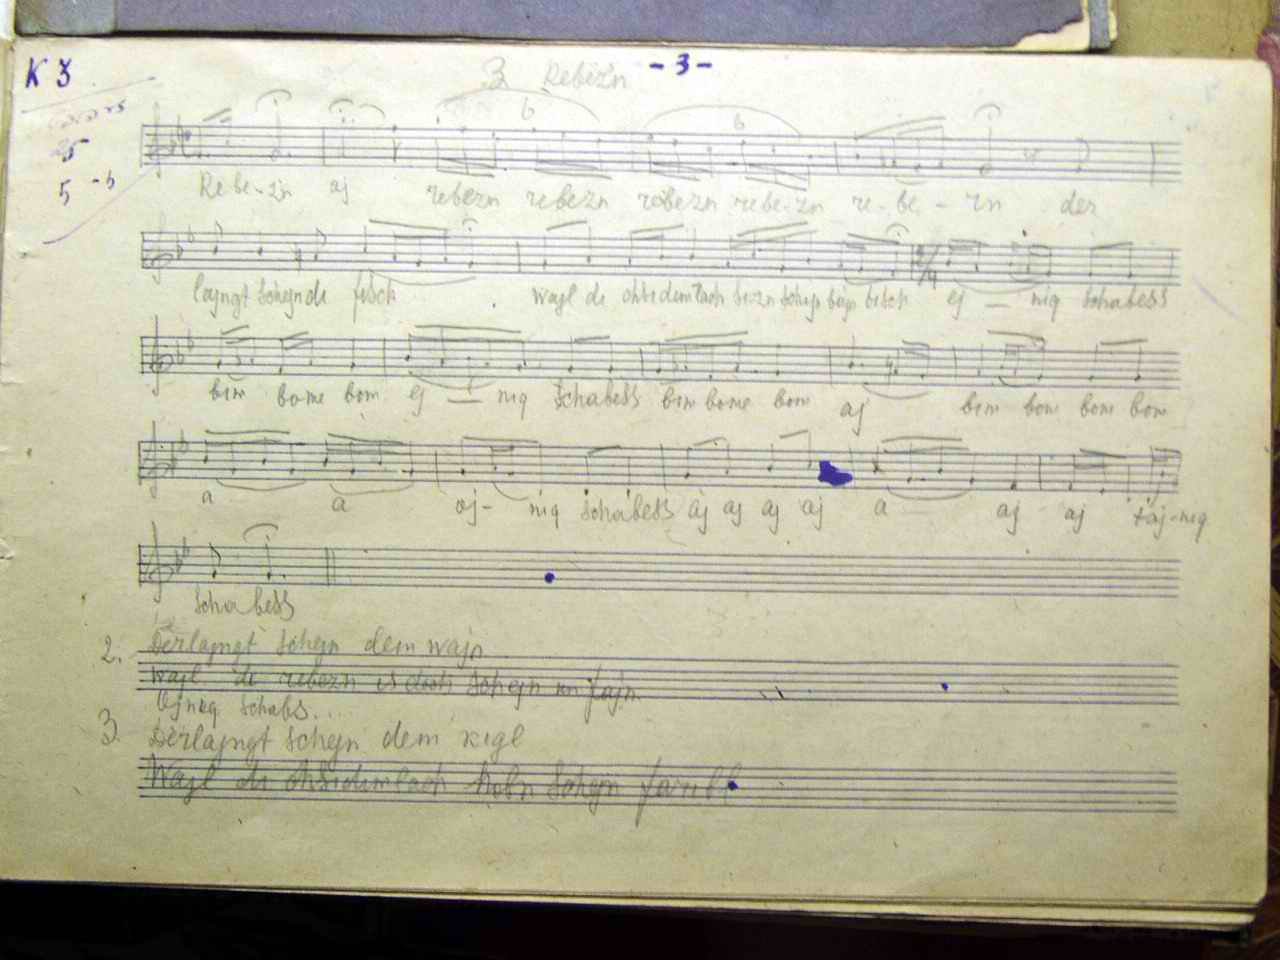 K 3
3 Rebezn - 3 -
5
5 -b
6 6
Re be-zn aj rebezn rebezn rebezn rebe-zn re-be-zn der
lajngt schejn di fisch . wajl di chsidimlach sizn schejn baj tisch ej — nig schabess
bim bome bom ej — nig schabess bim bome bom aj bim bom bom bom
a a aj- nig schabess aj aj aj aj a aj aj taj-nig
schabess
2. Derlajngt schejn dem wajn
wajl di rebezn is doch schejn un fajn
Ejnig schabs....
3. Derlajngt schejn dem kigl
Wajl di chsidimlach hobn schejn